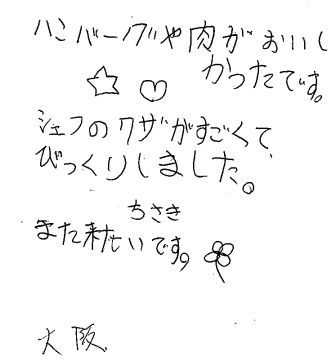 ハンバーグや肉がおいし
かったです。
シェフのワザがすごくて、
びっくりしました。
ちさき
また来たいです。
大阪